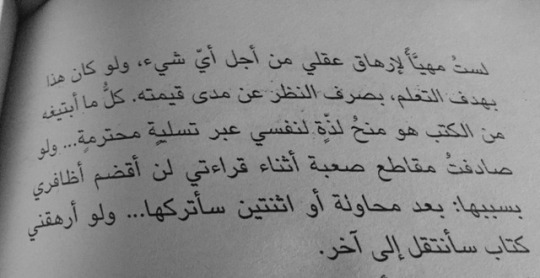 لستُ مهيَّأً لإرهاق عقلي من أجل أيّ شيء، ولو كان هذا
بهدف التعلم، بصرف النظر عن مدى قيمته. كلُّ ما أبتيغه
من الكتب هو منحُ لذّةٍ لنفسي عبر تسليةٍ محترمةٍ... ولو
صادفتُ مقاطع صعبة أثناء قراءتي لن أقضم أظافري
بسببها: بعد محاولة أو اثنتين سأتركها... ولو أرهقني
كتاب سأنتقل إلى آخر.